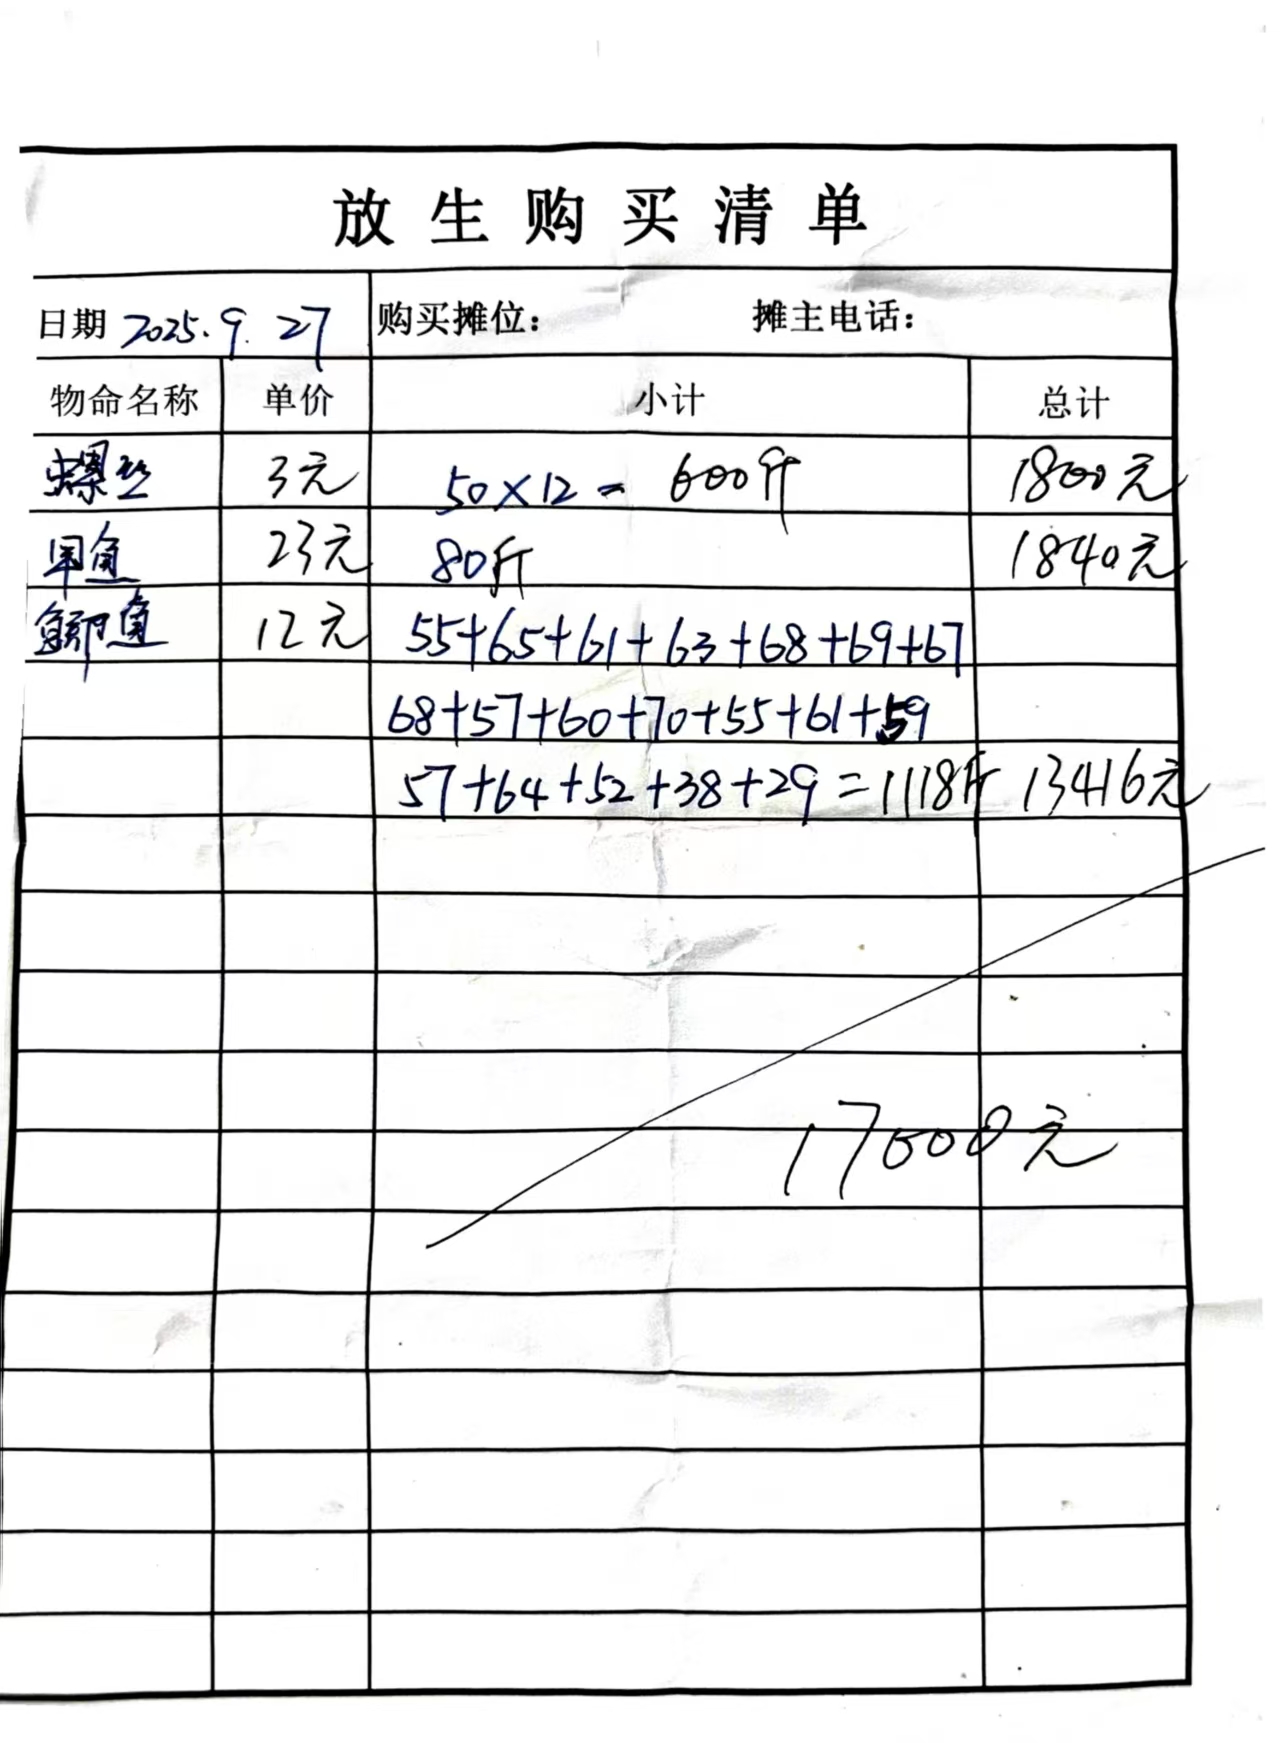 放生购买清单
日期 2025.9.27 购买摊位： 摊主电话：
物命名称 单价 小计 总计
螺丝 3元 50×12= 600斤 1800元
甲鱼 23元 80斤 1840元
鲫鱼 12元 55+65+61+63+68+69+67
68+57+60+70+55+61+59
57+64+52+38+29=1118斤 13416元
17000元